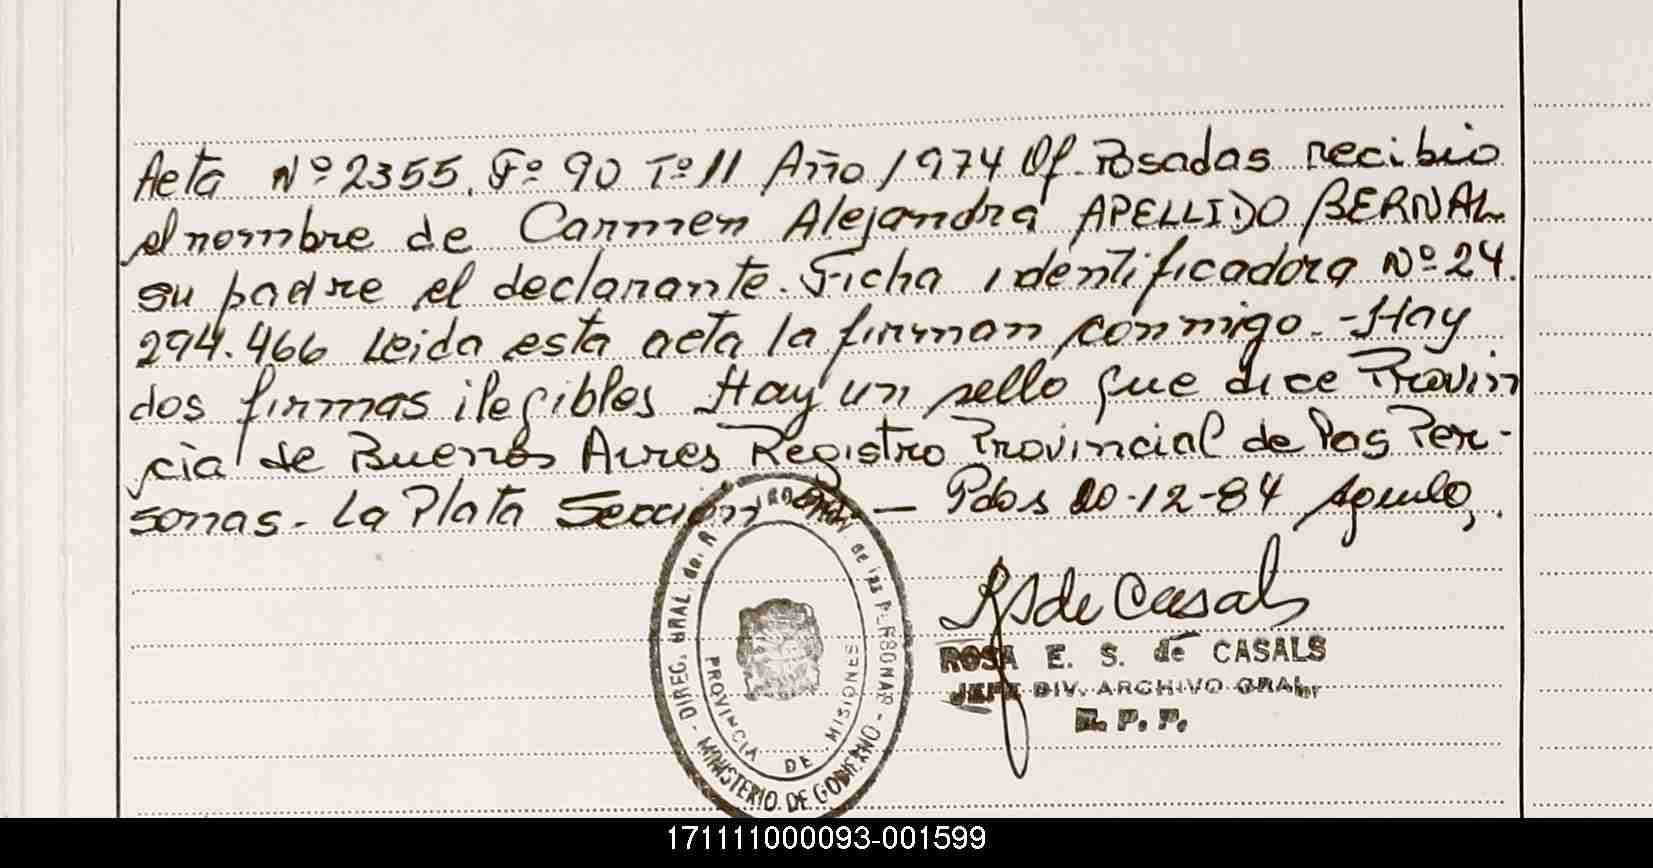 Acta Nº 2355. Fº 90 Tº 11 Año 1974 Of. Posadas recibio
el nombre de Carmen Alejandra APELLIDO BERNAL
su padre el declarante. Ficha identificadora Nº 24.
294.466 Leida esta acta la firman conmigo. - Hay
dos firmas ilegibles Hay un sello que dice Provin
cia de Buenos Aires Registro Provincial de las Per-
sonas. La Plata Sección — Pdas 20-12-84
RSde Casals
ROSA E. S. de CASALS
JEFE DIV. ARCHIVO GRAL.
R. P. P.
DIREC. GRAL. del de las PERSONAS - MINISTERIO DE GOBIERNO -
PROVINCIA DE MISIONES
171111000093-001599